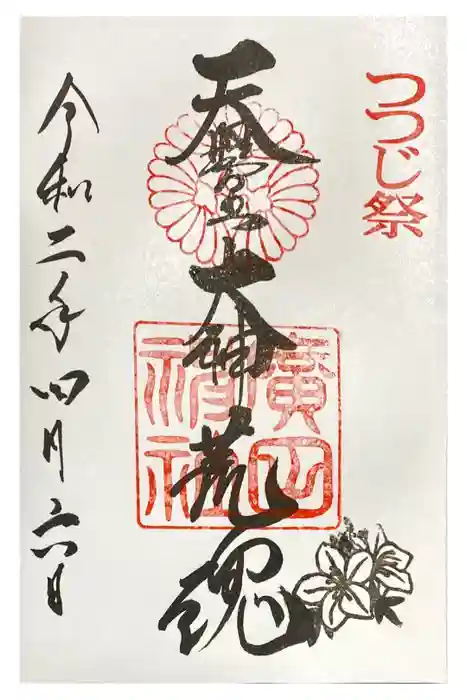 つつじ祭
天照大神荒魂
廣田
神社
令和二年四月六日